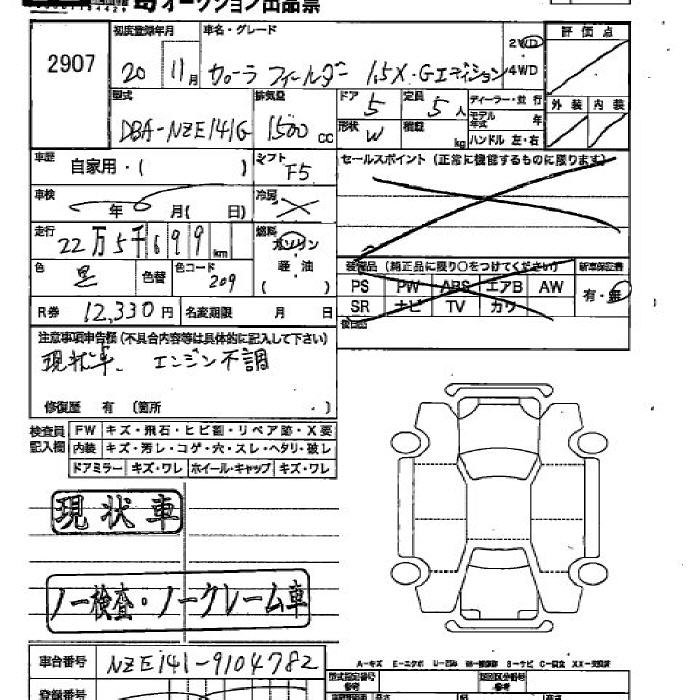 オークション出品票
2907
初度登録年月 20 11月
車名・グレード カローラ フィールダー 1.5X・Gエディション
2WD 4WD
評価点
外装 内装
型式 DBA-NZE141G
排気量 1500cc
ドア 5
定員 5人
形状 W
積載 kg
ディーラー・並行
モデル年式 年
ハンドル 左・右
車歴 自家用・( )
シフト F5
セールスポイント (正常に機能するものに限ります)
車検 年 月( 日)
冷房
走行 22万5千699km
燃料 ガソリン
軽・油
( )
色 黒 色替 色コード 209
装備品 (純正品に限り○をつけてください)
PS PW ABS エアB AW
SR ナビ TV カワ
新車保証書
有・無
R券 12,330円 名変期限 月 日
後日品
注意事項申告欄 (不具合内容等は具体的に記入して下さい)
現状車、エンジン不調
修復歴 有 (箇所 . )
検査員記入欄
FW キズ・飛石・ヒビ割・リペア跡・X要
内装 キズ・汚レ・コゲ・穴・スレ・ヘタリ・破レ
ドアミラー キズ・ワレ ホイール・キャップ キズ・ワレ
現状車
ノー検査・ノークレーム車
車台番号 NZE141-9104782
登録番号
A-キズ
型式指定番号
類別区分番号
長さ
幅
高さ